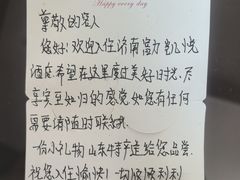 Happy every day
尊敬的客人
您好!欢迎入住济南富力凯悦
酒店.希望在这里度过美好时光,尽
享宾至如归的感觉.如您有任何
需要请随时联系我.
一份小礼物 山东特产送给您品尝.
祝您入住愉快!一切顺顺利利